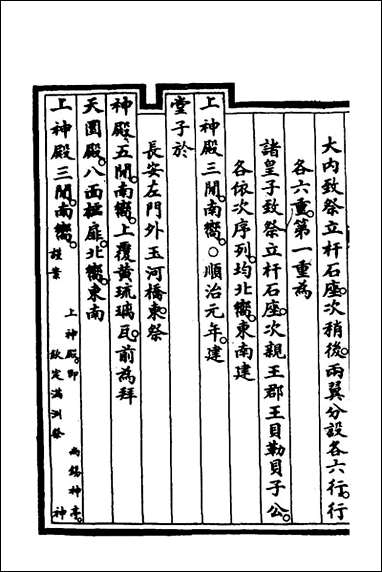 大内致祭立杆石座。次稍後兩翼分設各六行。行
各六重。第一重為
諸皇子致祭立杆石座。次親王郡王貝勒貝子公。
各依次序列。均北嚮。東南建
上神殿三間。南嚮。○順治元年。建
堂子於
長安左門外玉河橋。東。祭
神殿五間。南嚮。上覆黃琉璃瓦。前為拜
天圜殿。八面櫺扉。北嚮。東南
上神殿三間。南嚮。謹案
上神殿。即尚錫神亭。
欽定滿洲祭神